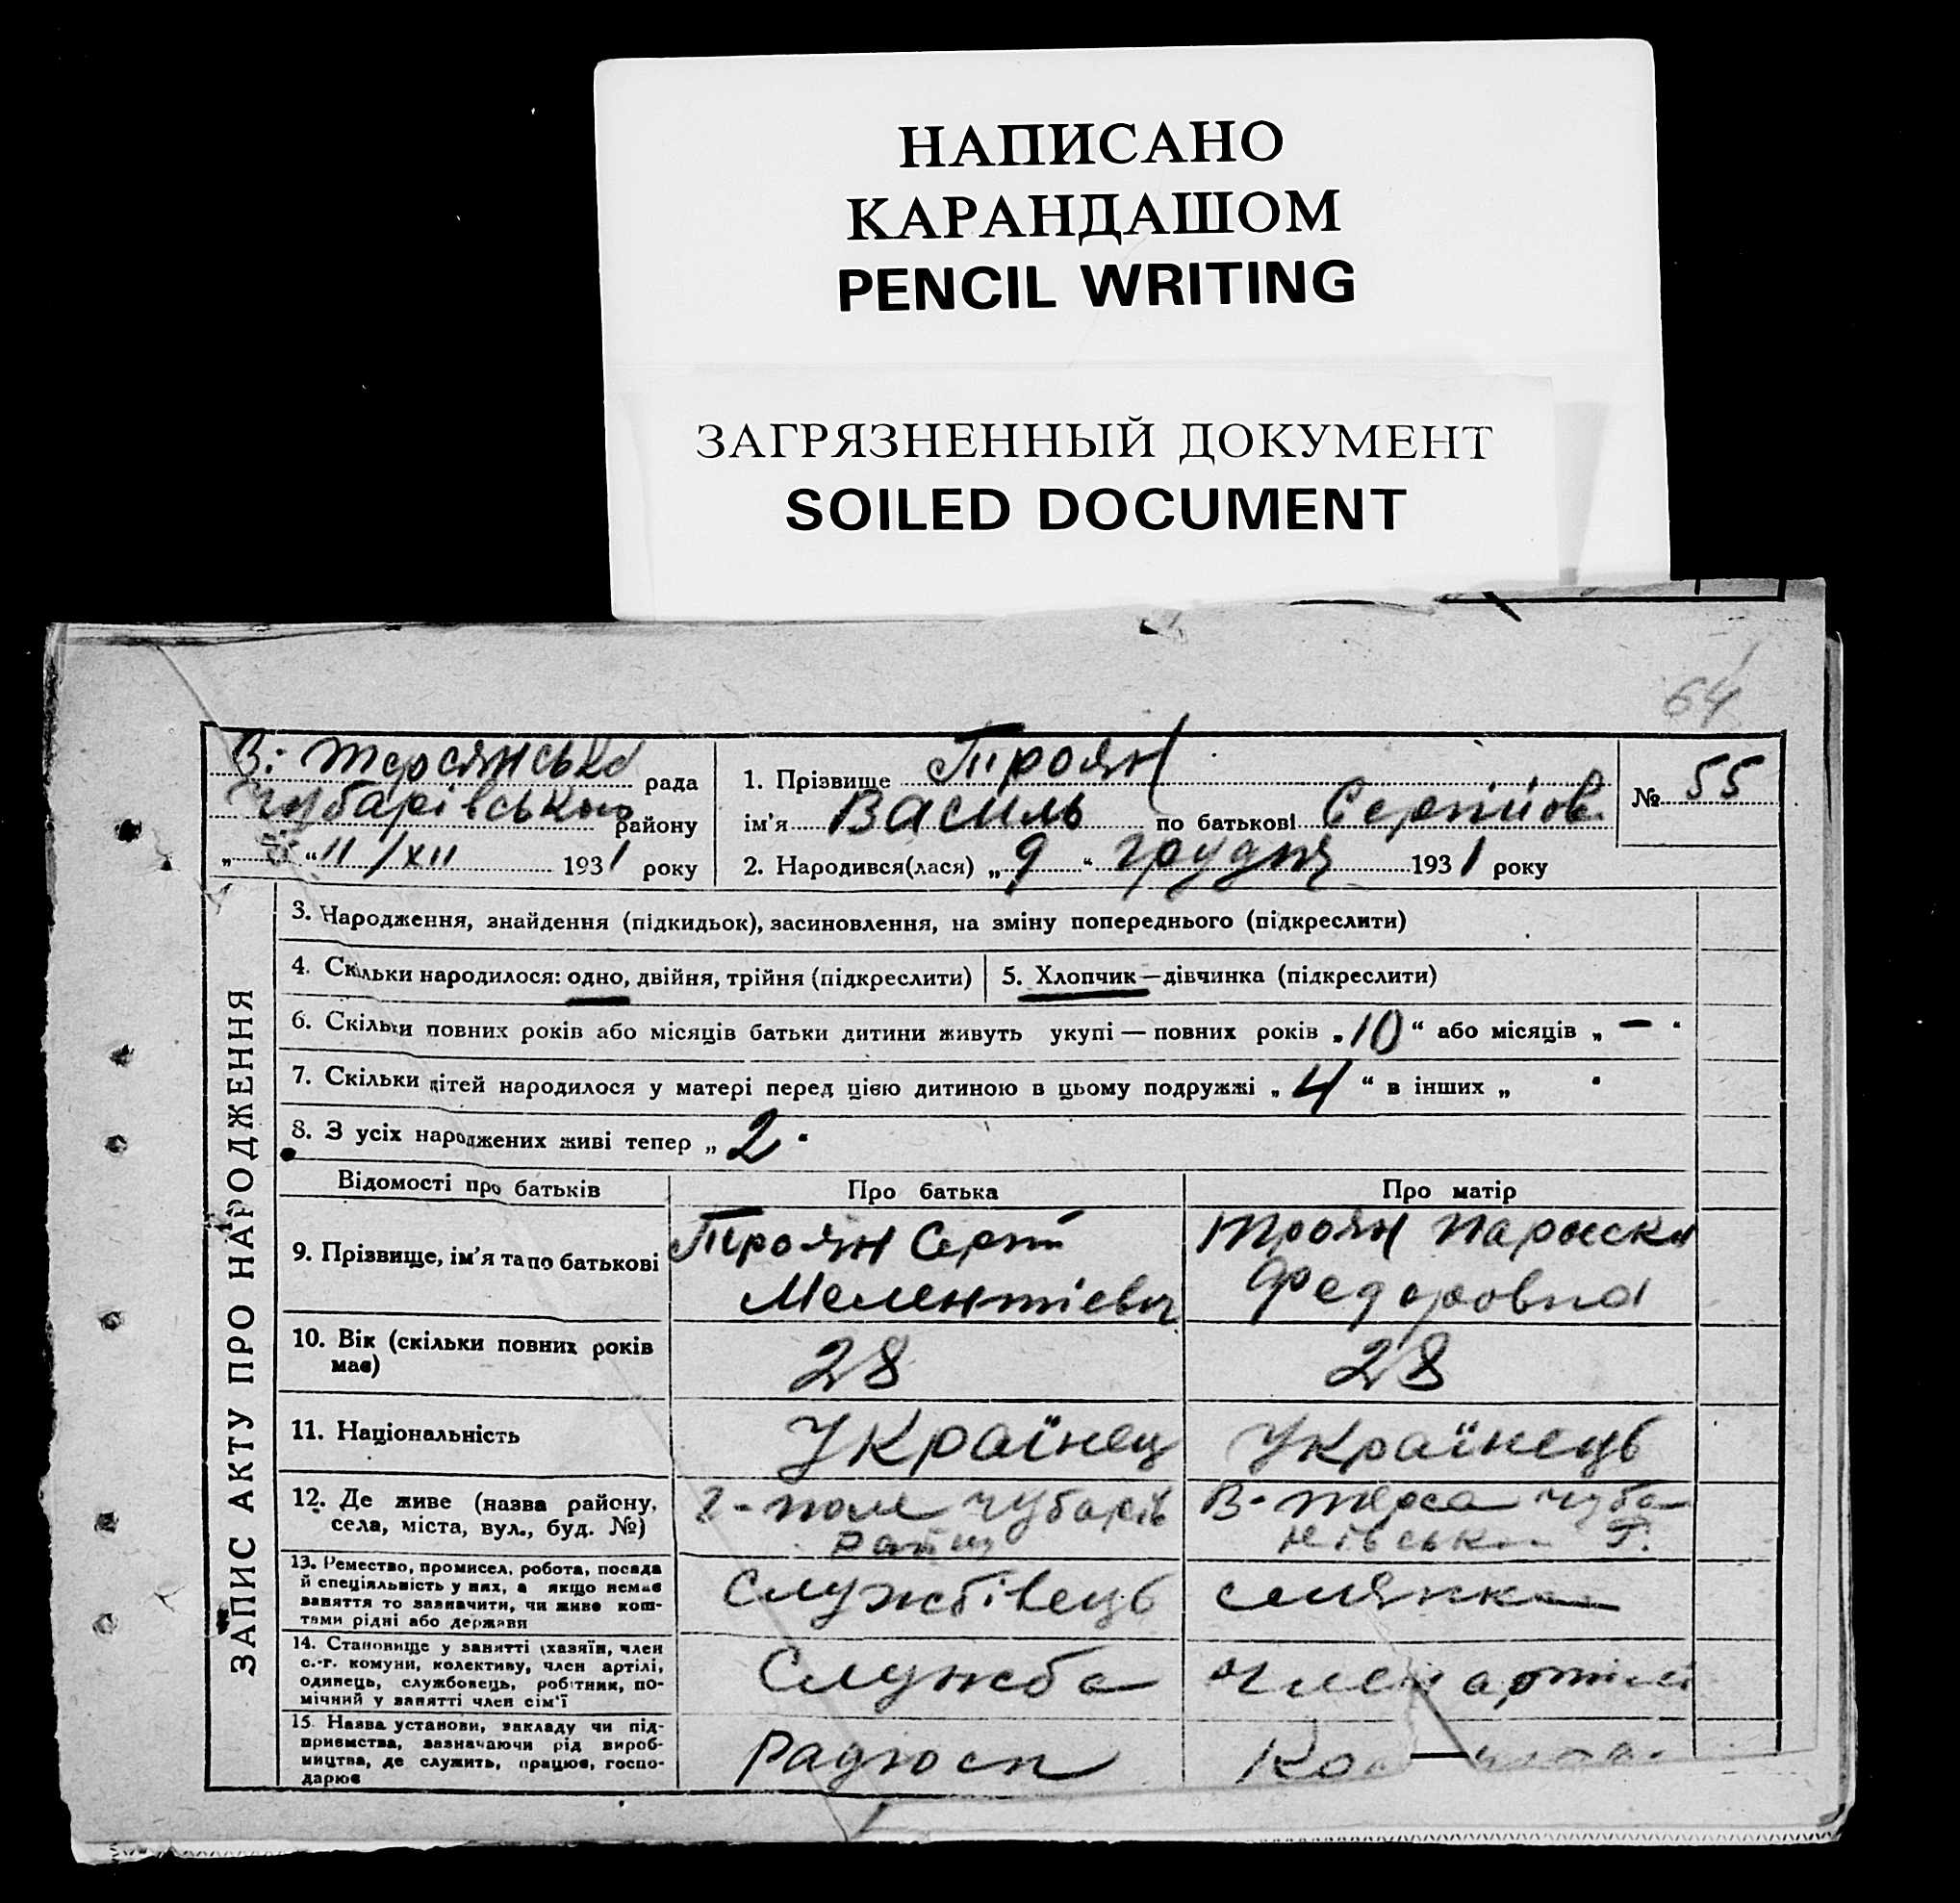 НАПИСАНО
КАРАНДАШОМ
PENCIL WRITING
ЗАГРЯЗНЕННЫЙ ДОКУМЕНТ
SOILED DOCUMENT
64
В: Терсянська рада
Чубарівського району
„ “ 11/XII 1931 року
1. Прізвище Троян
ім'я Василь по батькові Сергійов.
2. Народився(лася) „9“ грудня 1931 року
№ 55
ЗАПИС АКТУ ПРО НАРОДЖЕННЯ
3. Народження, знайдення (підкидьок), засиновлення, на зміну попереднього (підкреслити)
4. Скільки народилося: одно, двійня, трійня (підкреслити)
5. Хлопчик—дівчинка (підкреслити)
6. Скільки повних років або місяців батьки дитини живуть укупі — повних років „10“ або місяців „ – “
7. Скільки дітей народилося у матері перед цією дитиною в цьому подружжі „4“ в інших „ “
8. З усіх народжених живі тепер „2“
Відомості про батьків Про батька Про матір
9. Прізвище, ім'я та по батькові
Троян Сергій
Мелентієвич
Троян Параска
Федоровна
10. Вік (скільки повних років
має)
28
28
11. Національність
Українец
Українець
12. Де живе (назва району,
села, міста, вул., буд. №)
г-поле Чубарів
В-Терса Чуба
13. Ремество, промисел, робота, посада
й спеціяльність у них, а якщо немає
заняття то зазначити, чи живе кош-
тами рідні або держави
Службівець
селянка
14. Становище у занятті (хазяїн, член
с.-г. комуни, колективу, член артілі,
одинець, службовець, робітник, по-
мічний у занятті член сім'ї
Служба
член артілі
15. Назва установи, закладу чи під-
приємства, зазначаючи рід вироб-
ництва, де служить, працює, госпо-
дарює